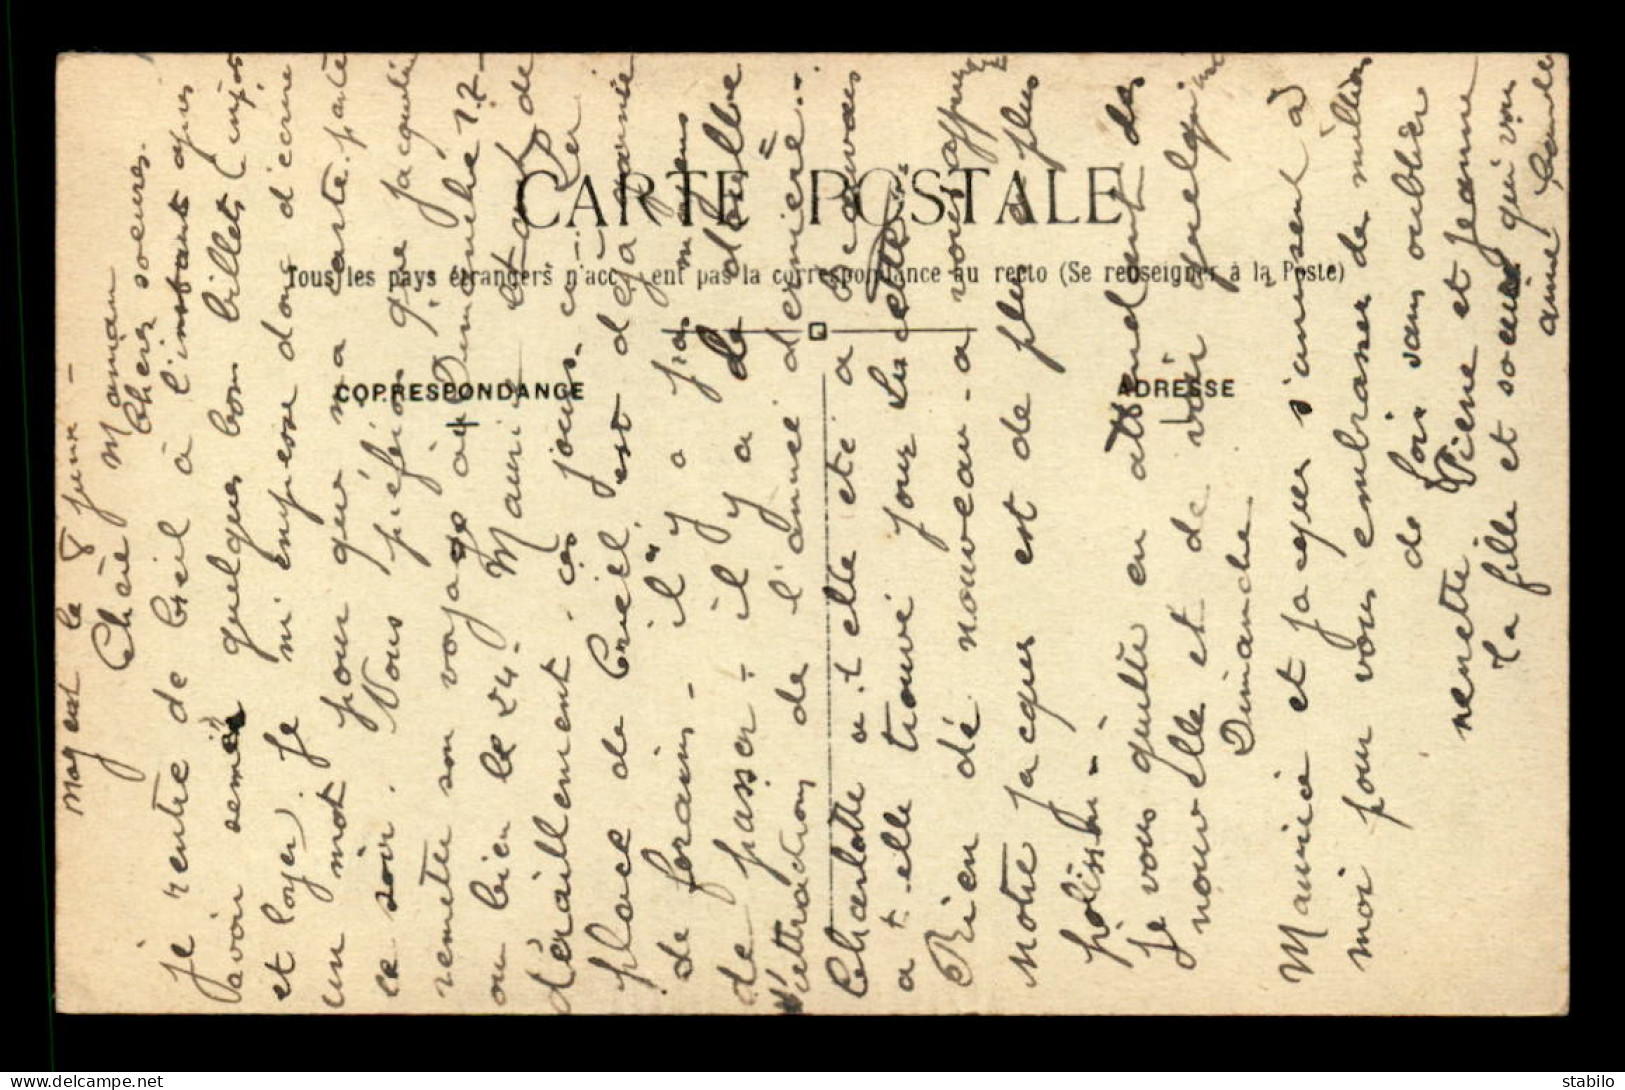 CARTE POSTALE
Tous les pays étrangers n'acc ent pas la correspondance au recto (Se renseigner à la Poste)
CORRESPONDANCE
ADRESSE
le 8 Juin -
Chère Maman
Chers soeurs.
Je rentre de Creil à l'instant après
avoir semée quelques bons billets (impôts
et loyer. Je m'empresse donc d'écrire
un mot pour que ma carte parte
ce soir. Nous préférions que Jacqueline
remette son voyage au Dimanche 17
ou bien le 24. Maurice étant de
déraillement ces jours-ci. La
place de Creil est déjà garnie
de forains - il y a pas moyen
de passer - il y a le double
d'attractions de l'année dernière.
Charlotte a-t-elle été à Beauvais
a-t-elle trouvé pour Lucette
Rien de nouveau a vous apprendre
notre Jacques est de plus en plus
polisson -
Je vous quitte en attendant des
nouvelle et de voir quelqu'un
Dimanche
Maurice et Jacques s'unissent à
moi pour vous embrasser de millions
de fois sans oublier
nenette Pierre et Jeanne
La fille et soeur qui vous
aime
delcampe.net
stabilo